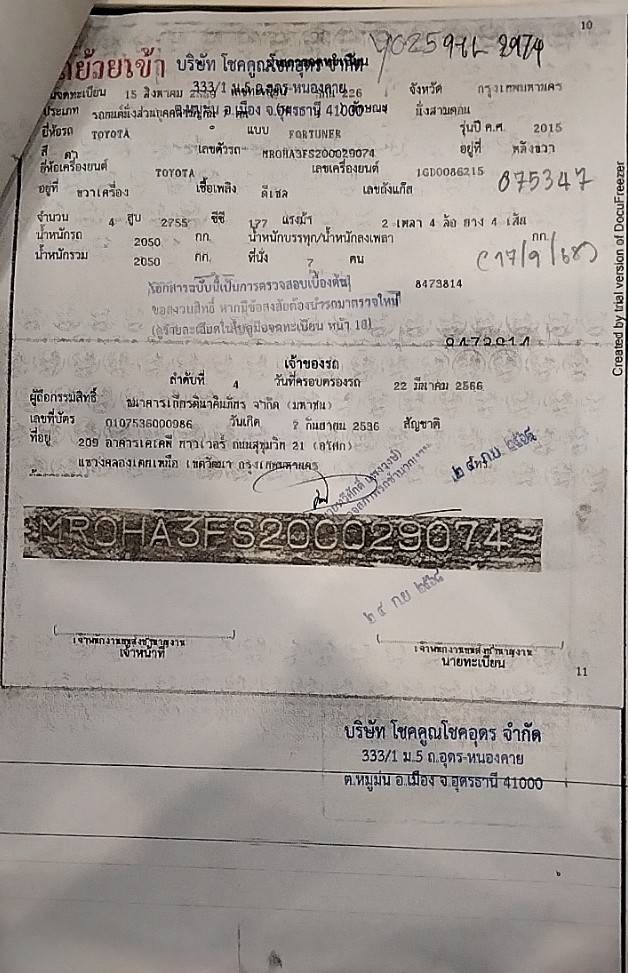 10
ย้ายเข้า บริษัท โชคคูณโชคอุดร จำกัด
333/1 ม.5 ถ.อุดร-หนองคาย
ต.หมูม่น อ.เมือง จ.อุดรธานี 41000
วันจดทะเบียน 15 สิงหาคม 226 จังหวัด กรุงเทพมหานคร
ประเภท รถยนต์นั่งส่วนบุคคล ลักษณะ นั่งสามตอน
ยี่ห้อรถ TOYOTA แบบ FORTUNER รุ่นปี ค.ศ. 2015
สี ดำ เลขตัวรถ MR0HA3FS200029074 อยู่ที่ หลังขวา
ยี่ห้อเครื่องยนต์ TOYOTA เลขเครื่องยนต์ 1GD0086215
อยู่ที่ ขวาเครื่อง เชื้อเพลิง ดีเซล เลขถังแก๊ส
075347
จำนวน 4 สูบ 2755 ซีซี 177 แรงม้า 2 เพลา 4 ล้อ ยาง 4 เส้น
น้ำหนักรถ 2050 กก. น้ำหนักบรรทุก/น้ำหนักลงเพลา กก.
น้ำหนักรวม 2050 กก. ที่นั่ง 7 คน
(17/9/68)
เอกสารฉบับนี้เป็นการตรวจสอบเบื้องต้น
8473814
ขอสงวนสิทธิ์ หากมีข้อสงสัยต้องนำรถมาตรวจใหม่
(ดูรายละเอียดในใบคู่มือจดทะเบียน หน้า 18)
เจ้าของรถ
ลำดับที่ 4 วันที่ครอบครองรถ 22 มีนาคม 2566
ผู้ถือกรรมสิทธิ์ ธนาคารเกียรตินาคินภัทร จำกัด (มหาชน)
เลขที่บัตร 0107536000986 วันเกิด 2 กันยายน 2536 สัญชาติ
ที่อยู่ 209 อาคารเคเคพี ทาวเวอร์ ถนนสุขุมวิท 21 (อโศก)
แขวงคลองเตยเหนือ เขตวัฒนา กรุงเทพมหานคร
๒๔ ก.ย. ๒๕๖๘
MR0HA3FS200029074
๒๔ ก.ย. ๒๕๖๘
เจ้าพนักงานขนส่งชำนาญงาน
เจ้าหน้าที่
เจ้าพนักงานขนส่งชำนาญงาน
นายทะเบียน
11
บริษัท โชคคูณโชคอุดร จำกัด
333/1 ม.5 ถ.อุดร-หนองคาย
ต.หมูม่น อ.เมือง จ.อุดรธานี 41000
Created by trial version of DocuFreezer